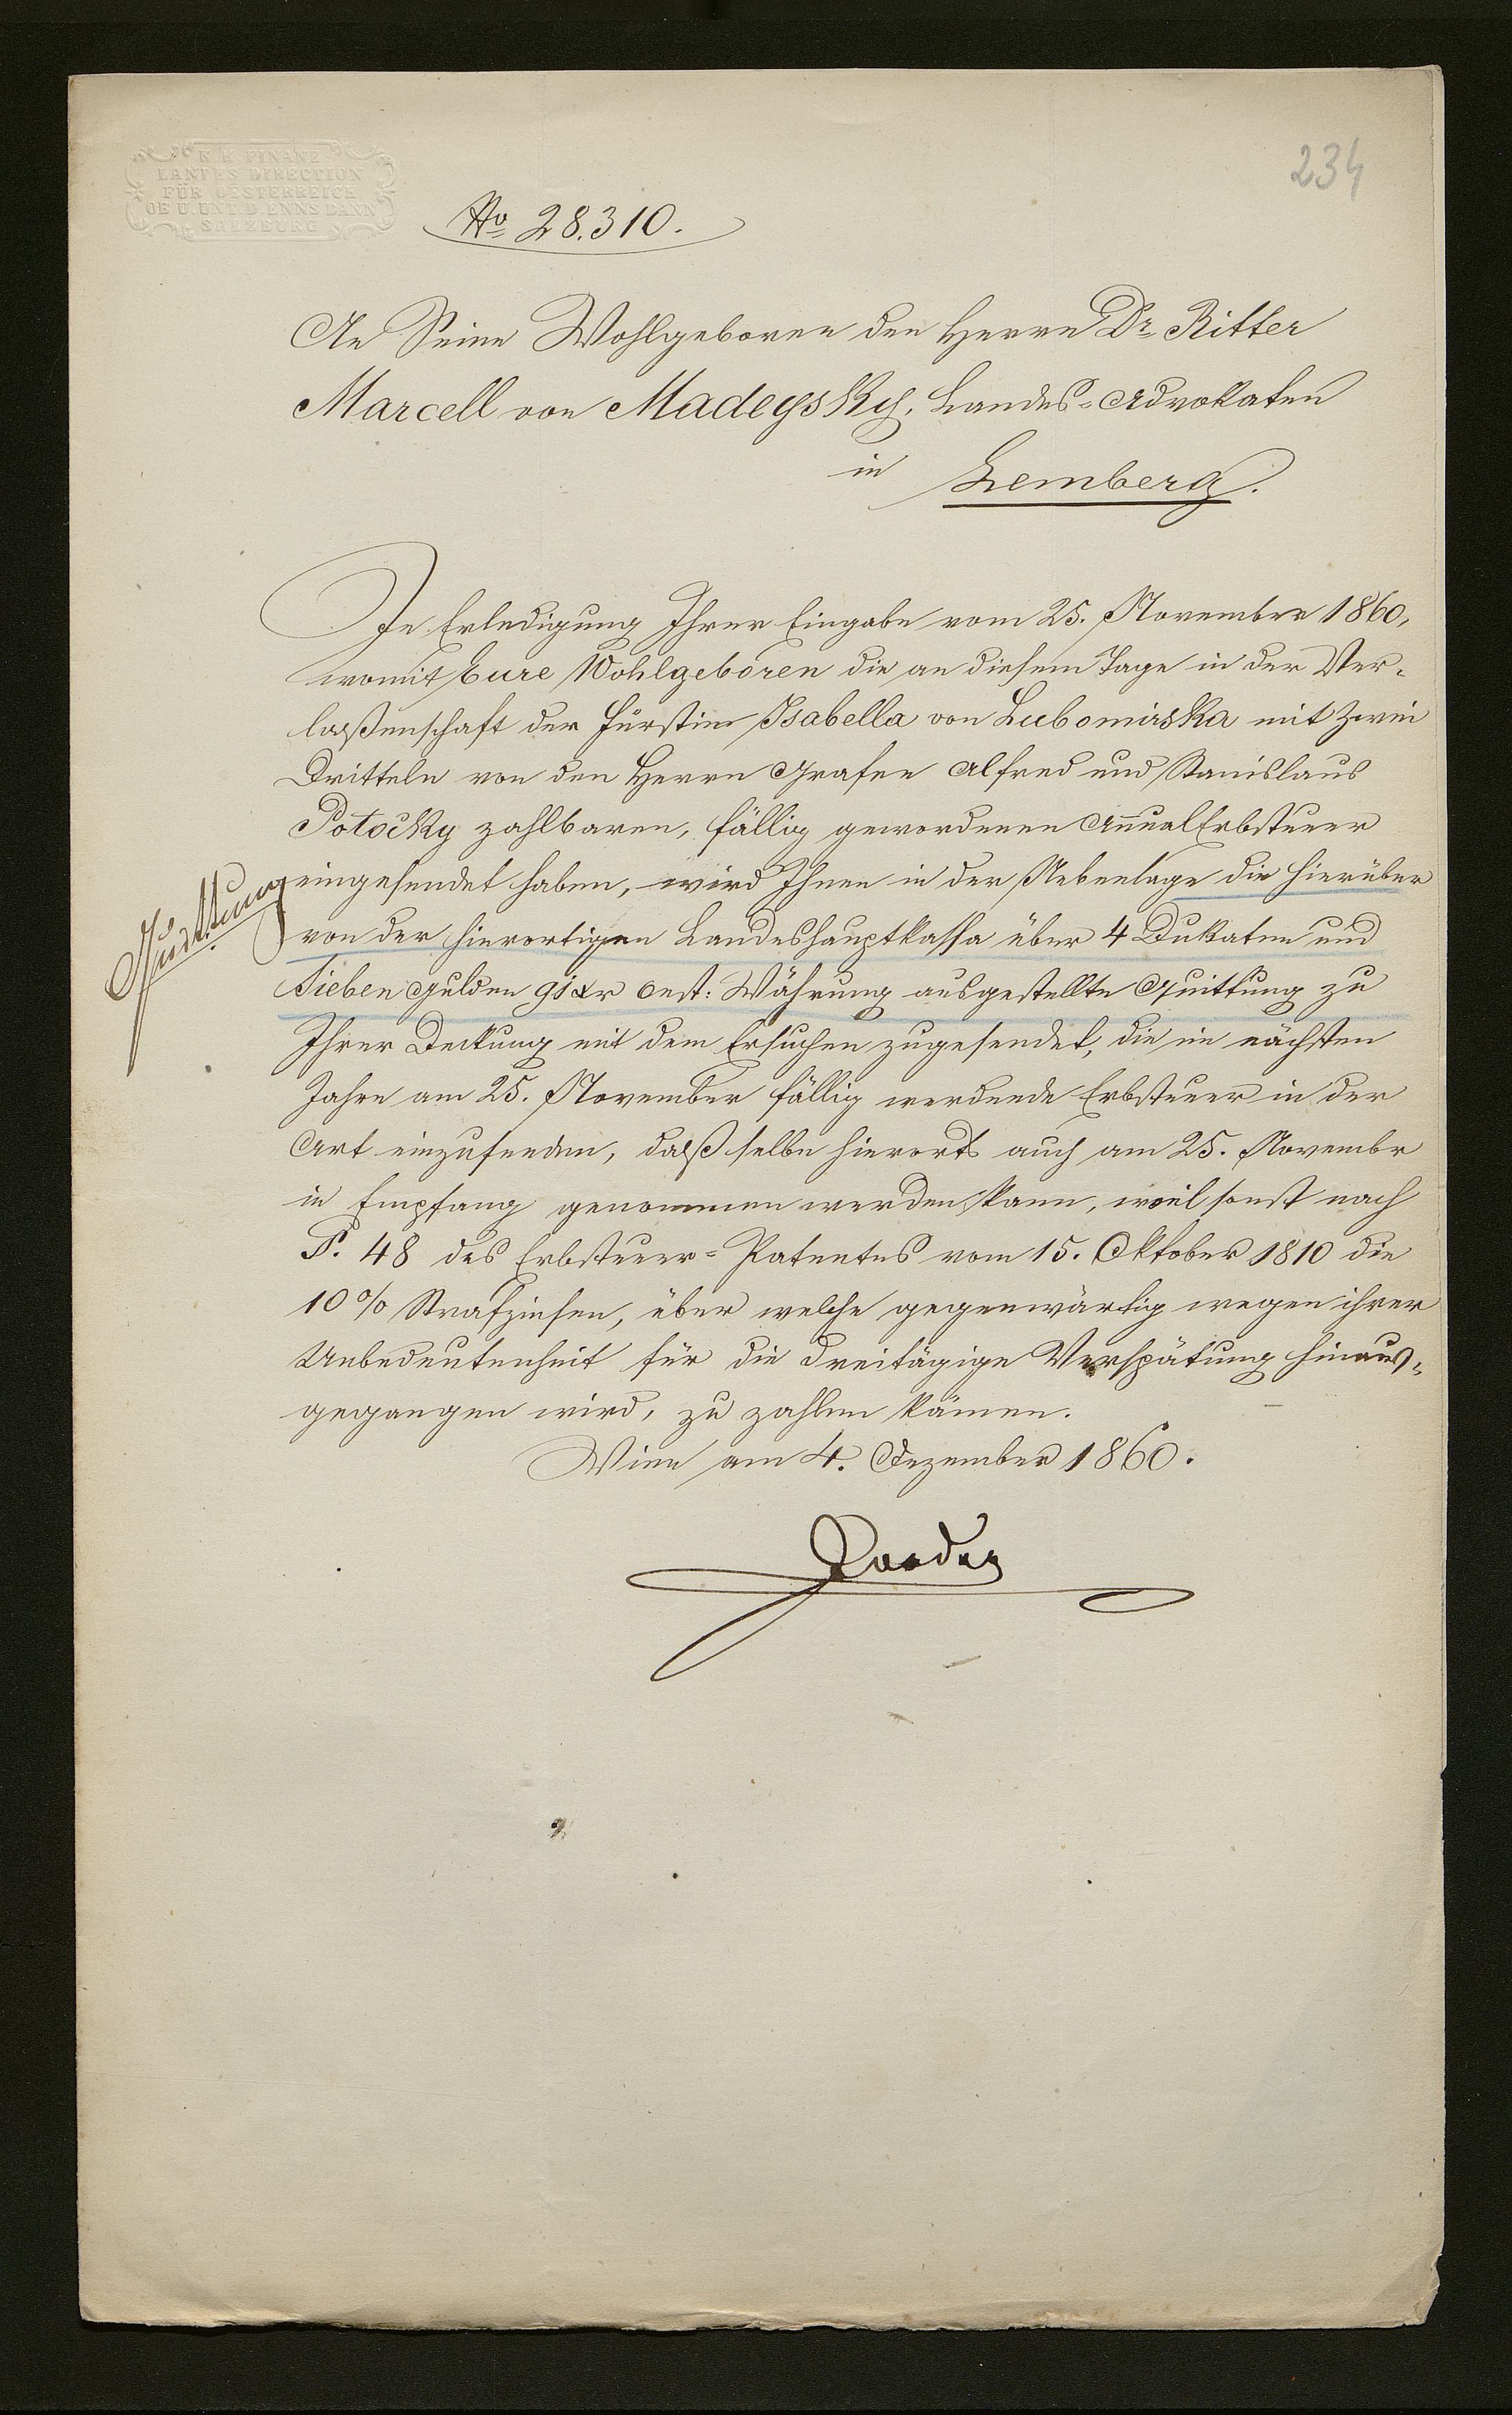 K. K. FINANZ
LANDES DIRECTION
FÜR OESTERREICH
OB U. UNT. D. ENNS DANN
SALZBURG
234
No 28.310.
An Seine Wohlgeboren den Herrn Dr. Ritter
Marcell von Madeysky, Landes-Advokaten
in Lemberg.
In Erledigung Ihrer Eingabe vom 25. November 1860,
womit Eure Wohlgeboren die an diesem Tage in der Ver-
laßenschaft der Fürstin Isabella von Lubomirska mit Zwei
Dritteln von den Herrn Grafen Alfred und Stanislaus
Potočky zahlbaren, fällig gewordenen Annual Erbsteuer
eingesendet haben, wird Ihnen in der Nebenlage die hierüber
Quittung
von der hierortigen Landeshauptkassa über 4 Dukaten und
Sieben Gulden 91 xr oest: Währung ausgestellte Quittung zu
Ihrer Deckung mit dem Ersuchen zugesendet, die im nächsten
Jahre am 25. November fällig werdende Erbsteuer in der
Art einzusenden, daß selbe hierorts auch am 25. Novembr
in Empfang genommen werden kann, weil sonst nach
§. 48 des Erbsteuer-Patentes vom 15. Oktober 1810 die
10% Strafzinsen, über welche gegenwärtig wegen ihrer
Unbedeutenheit für die dreitägige Verspätung hinaus-
gegangen wird, zu zahlen kämen.
Wien am 4. Dezember 1860.